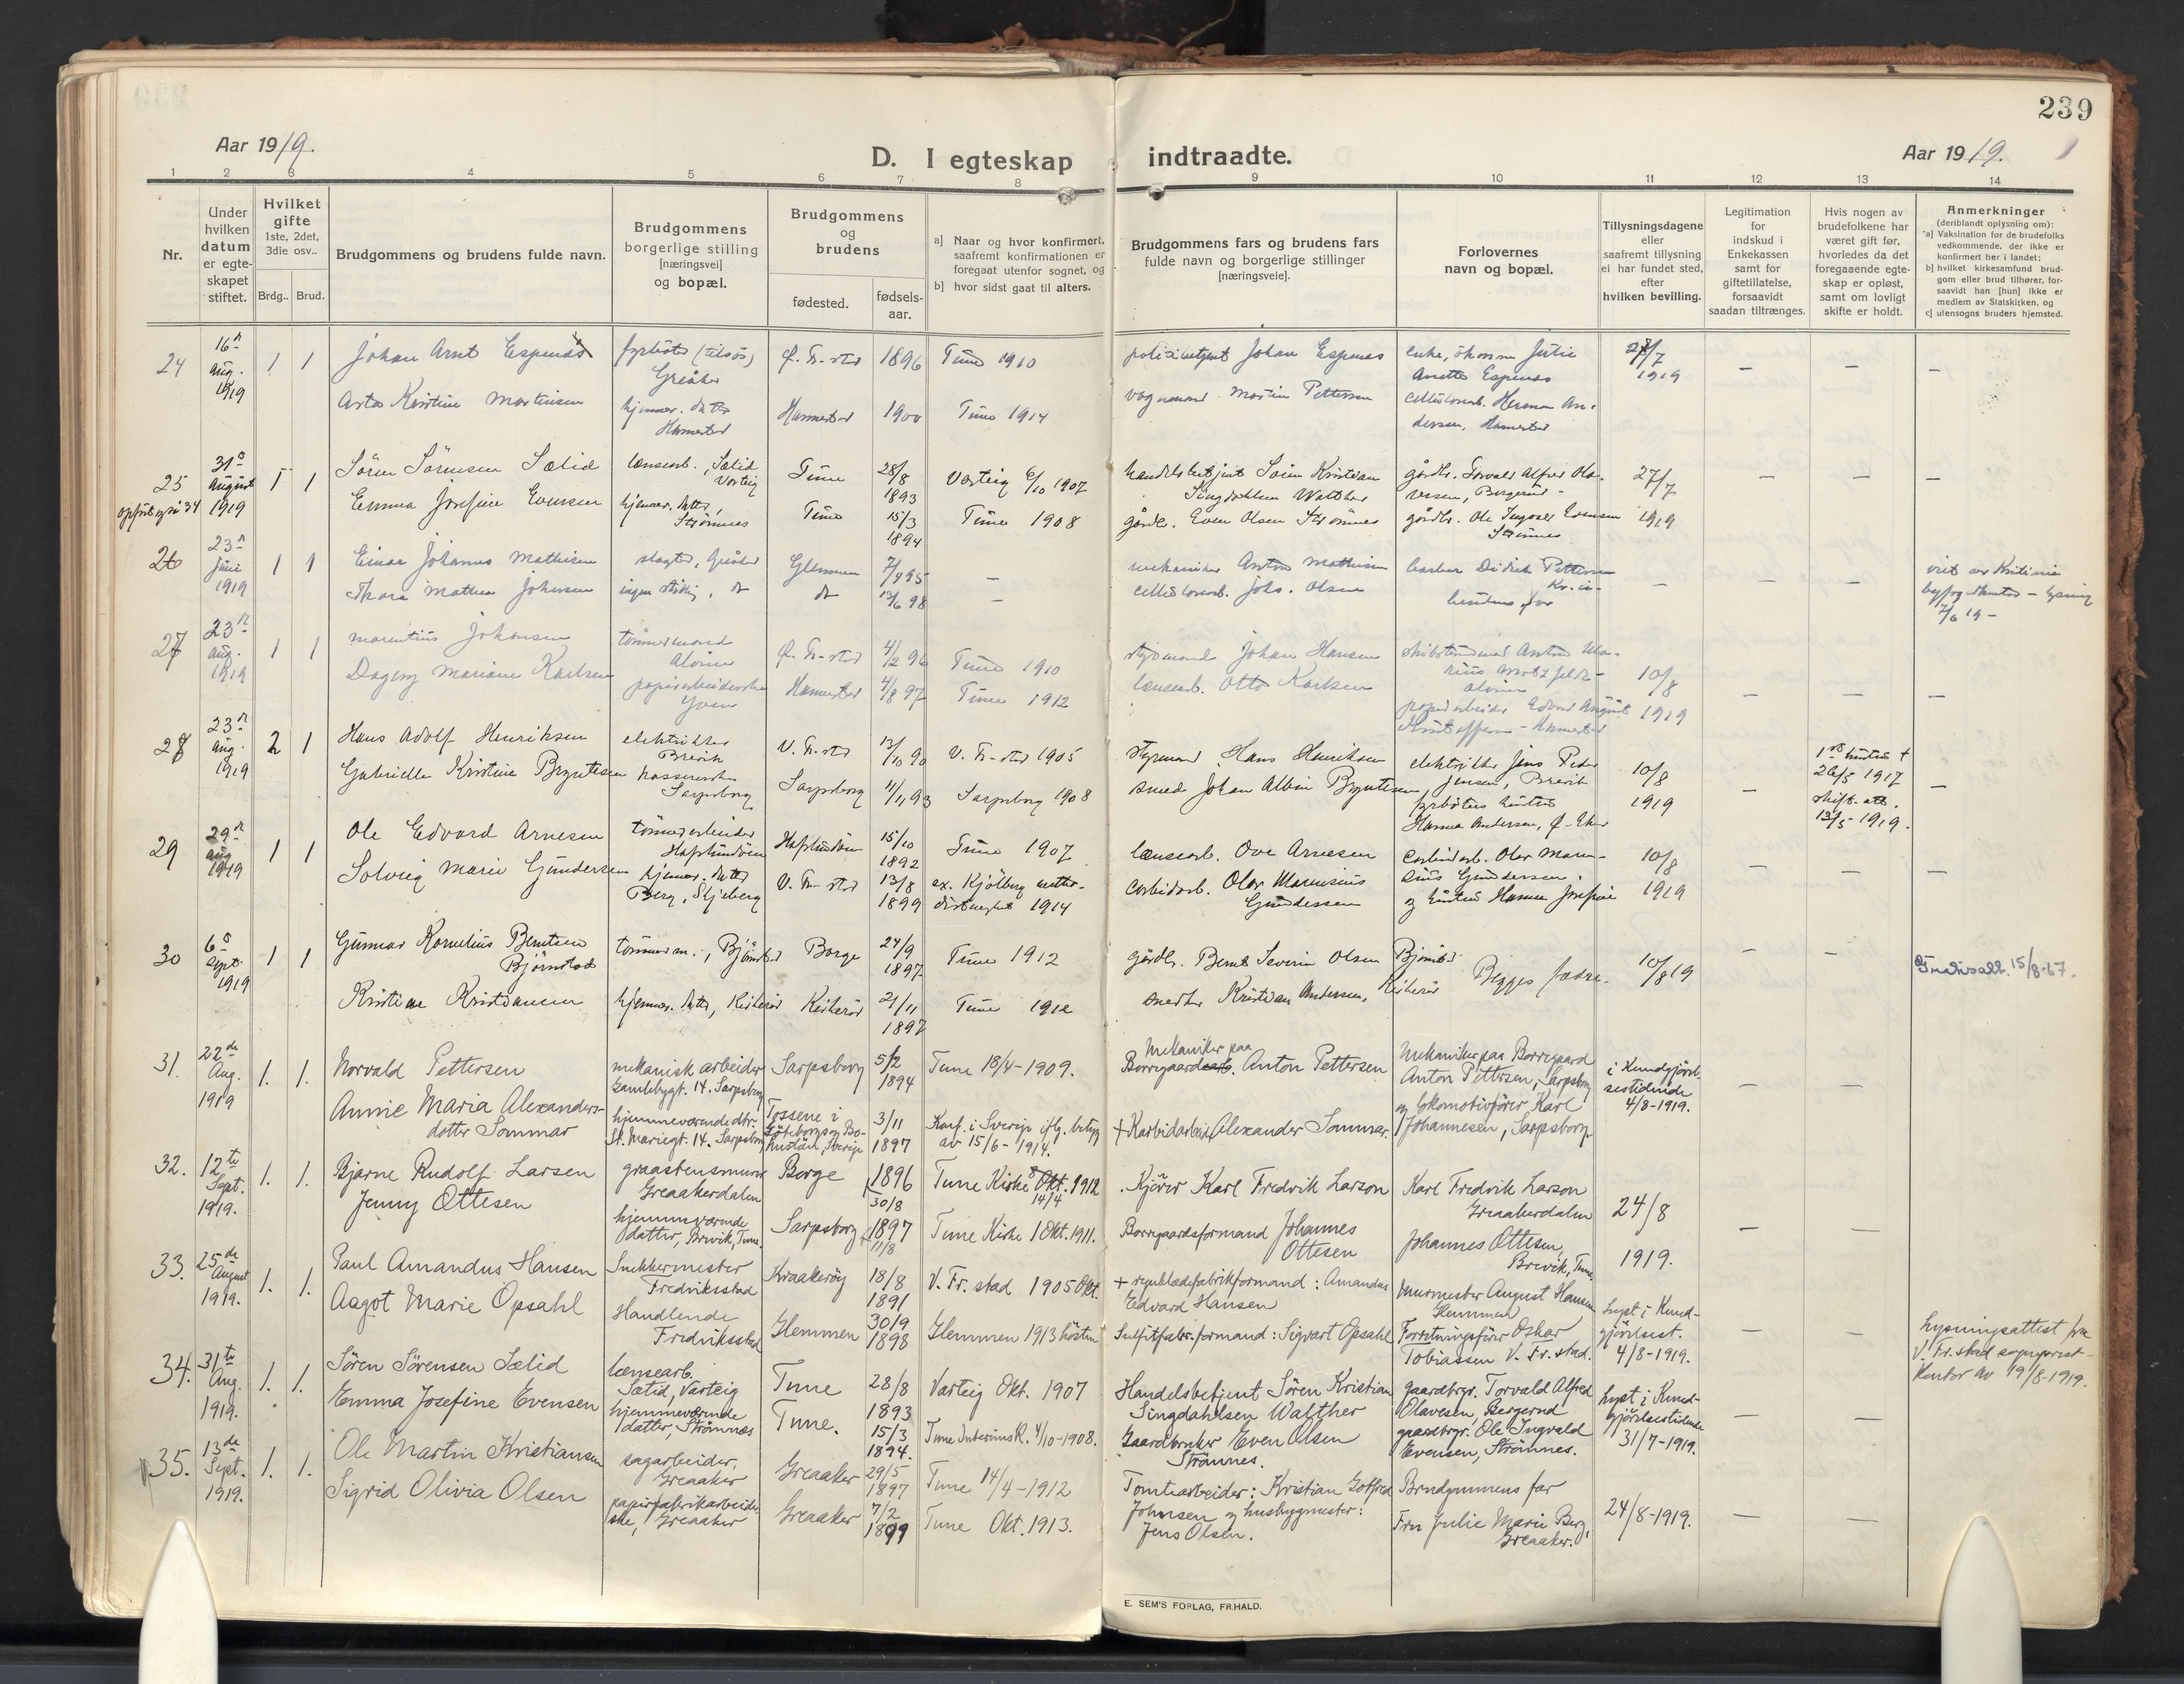 239
Aar 1919.
D. I egteskap indtraadte.
Aar 1919.
1 2 3 4 5 6 7 8 9 10 11 12 13 14
Nr.
Under
hvilken
datum
er egte-
skapet
stiftet.
Hvilket
gifte
1ste, 2det,
3die osv..
Brdg.. Brud.
Brudgommens og brudens fulde navn.
Brudgommens
borgerlige stilling
[næringsvei]
og bopæl.
Brudgommens
og
brudens
fødested.
fødsels-
aar.
a] Naar og hvor konfirmert,
saafremt konfirmationen er
foregaat utenfor sognet, og
b] hvor sidst gaat til alters.
Brudgommens fars og brudens fars
fulde navn og borgerlige stillinger
[næringsveie].
Forlovernes
navn og bopæl.
Tillysningsdagene
eller
saafremt tillysning
ei har fundet sted,
efter
hvilken bevilling.
Legitimation
for
indskud i
Enkekassen
samt for
giftetillatelse,
forsaavidt
saadan tiltrænges.
Hvis nogen av
brudefolkene har
været gift før,
hvorledes da det
foregaaende egte-
skap er opløst,
samt om lovligt
skifte er holdt.
Anmerkninger
(deriblandt oplysning om):
a] Vaksination for de brudefolks
vedkommende, der ikke er
konfirmert her i landet;
b] hvilket kirkesamfund brud-
gom eller brud tilhører, for-
saavidt han [hun] ikke er
medlem av Statskirken, og
c] utensogns bruders hjemsted.
24
16
Aug.
1919
1 1
Johan Arnt Espenes
Asta Kristine Martinsen
Greåker
hjemmev. datter
Hannestad
Ø. Fr-stad 1896 Tune 1910
Hannestad 1900 Tune 1914
politibetjent Johan Espenes
Martin Pettersen
Julie
Anette Espenes
Herman An-
dersen, Hannestad
1919
— — —
25
31
August
1919
1 1
Sören Sörensen Sælid
Emma Josefine Evensen
lænsearb., Sælid
Varteig
hjemmev. datter,
Strömnes
Tune 28/8 1893 Varteig 6/10 1907
Tune 15/3 1894 Tune 1908
handelsbetjent Sören Kristian
Singdahlsen Walther
gårdbr. Even Olsen Strömnes
gårdbr. Torvald Alfred Ola-
vesen, Bergerud
gårdbr. Ole Ingvald Evensen
Strömnes
27/7
1919
— — —
26
23
Juni
1919
1 1
Einar Johannes Mathisen
Thora Mathea Johnsen
slagter, Greåker
ingen stilling, do
Glemmen 7/4 95 —
do 98 —
mekaniker Anton Mathisen
cellulosearb. Johs. Olsen
barber Didrik Pettersen
— — —
27
23
Aug.
1919
1 1
Marentius Johansen
Dagny Mariane Karlsen
tömmermand
Alvim
papirarbeiderske
Yven
Ø. Fr-stad 4/2 96 Tune 1910
Hannestad 4/8 97 Tune 1912
styrmand Johan Hansen
lænsearb. Otto Karlsen
Alvim
papirarbeider Edvard August
10/8
1919
— — —
28
23
Aug.
1919
2 1
Hans Adolf Henriksen
Gabrielle Kristine Bryntesen
elektriker
Brevik
Sarpsborg
V. Fr-stad 13/10 90 V. Fr-stad 1905
Sarpsborg 11/11 93 Sarpsborg 1908
styrmand Hans Henriksen
smed Johan Albin Bryntesen
elektriker Jens Peder
Jensen, Brevik
Hanna Andersen,
10/8
1919
—
26/5 1917
skift. att.
13/5 1919.
—
29
29
Aug
1919
1 1
Ole Edvard Arnesen
Solveig Marie Gundersen
tömmerarbeider
Hafslundsöen
hjemmev. datter
Berg, Skjeberg
Hafslundsöen 15/10 1892 Tune 1907
V. Fr-stad 13/8 1899 ex. Kjölberg
1914
lænsearb. Ove Arnesen
carbidarb. Olav Marensius
Gundersen
carbidarb. Olav Maren-
sius Gundersen
og hustru Hanna Josefine
10/8
1919
— — —
30
6
Sept.
1919
1 1
Gunnar Kornelius Berntsen
Björnstad
Kristine Kristiansen
tömmerm., Björnstad Borge 24/9 1897 Tune 1912
hjemmev. datter, Kirkeröd Kirkeröd 21/11 1897 Tune 1912
gårdbr. Bernt Severin Olsen Björnstad
Kristian Andersen, Kirkeröd
Begges fædre.
10/8 19
— —
15/8-67.
31.
22de
Aug.
1919
1. 1.
Norvald Pettersen
Annie Maria Alexanders-
dotter Sommar
mekanisk arbeider
Gamlebygt. 14. Sarpsborg
hjemmeværende dtr.
St. Mariegt. 14. Sarpsborg
Sarpsborg 5/2 1894 Tune 18/4-1909.
Tossene i
Göteborgs og Bo-
huslän, Sverige
3/11
1897
Konf. i Sverige iflg. betyg
av 15/6-1914.
Mekaniker paa
Borregaard Anton Pettersen
+ Karbidarbeider Alexander Sommar.
Mekaniker paa Borregaard
Anton Pettersen, Sarpsborg
og lokomotivförer Karl
Johannesen, Sarpsborg
i Kundgjörel-
sestidende
4/8-1919.
— —
32.
12te
Sept.
1919.
1. 1.
Bjarne Rudolf Larsen
Jenny Ottesen
graastensmurer
Greaakerdalen
hjemmeværende
datter, Brevik, Tune.
Borge 1896 30/8 Tune Kirke Okt. 1912
14/4
Sarpsborg 1897 11/8 Tune Kirke 1 Okt. 1911.
Kjörer Karl Fredrik Larson
Borregaardsformand Johannes
Ottesen
Karl Fredrik Larson
Greaakerdalen
Johannes Ottesen,
Brevik, Tune.
24/8
1919.
— —
33.
25de
August
1919.
1. 1.
Paul Amandus Hansen
Aagot Marie Opsahl
Snekkermester
Fredriksstad
Handlende
Fredriksstad
Kraakeröy 18/8 1891 V. Fr. stad 1905 Okt.
Glemmen 30/9 1898 Glemmen 1913 hösten
+ formand: Amandus
Edvard Hansen
Sulfitfabr. formand: Sigvart Opsahl
Murmester August Hansen
Glemmen
Forretningsförer Oskar
Tobiassen V. Fr. stad.
Lyst i Kund-
gjörelsest.
4/8-1919.
— —
Lysningsattest fra
V. Fr. stad sogneprest-
kontor av 19/8-1919.
34.
31te
Aug.
1919.
1. 1.
Sören Sörensen Sælid
Emma Josefine Evensen
lænsearb.
Sælid, Varteig
hjemmeværende
datter, Strömnæs
Tune 28/8 1893 Varteig Okt. 1907
Tune. 15/3 1894. Tune InterimsK. 4/10-1908.
Handelsbetjent Sören Kristian
Singdahlsen Walther
Gaardbruker Even Olsen
Strömnes.
gaardbrgr. Torvald Alfred
Olavesen, Bergerud
gaardbrgr. Ole Ingvald
Evensen, Strömnes.
Lyst i Kund-
gjörelsestidende
31/7-1919.
— —
35.
13de
Sept.
1919.
1. 1.
Ole Martin Kristiansen
Sigrid Olivia Olsen
sagarbeider,
Greaaker
papirfabrikarbeider-
ske, Greaaker
Greaaker 29/5 1897 Tune 14/4-1912
Greaaker 7/2 1899 Tune Okt. 1913.
Tomtearbeider: Kristian Gotfred
Johnsen og husbygmester:
Jens Olsen.
Brudgummens far
Fru Julie Marie Berg,
Greaaker.
24/8-1919.
— —
E. SEM'S FORLAG, FR.HALD.